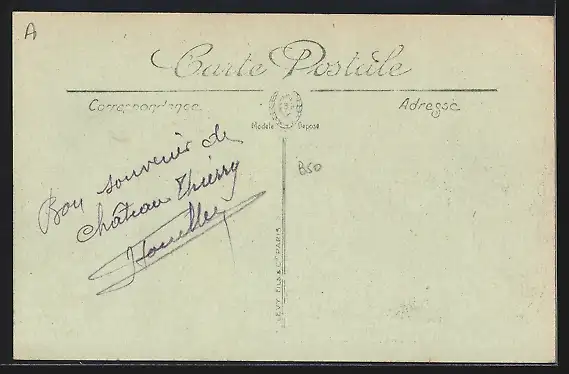 A
Carte Postale
Correspondance
Adresse
Modèle Déposé
Bon souvenir de
Château Thierry
B50
LEVY FILS & Cie PARIS